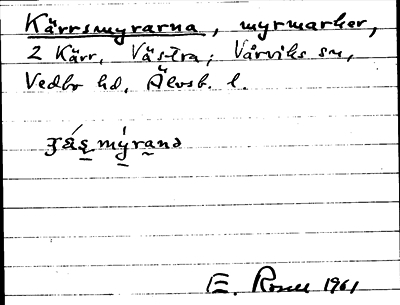 Kärrsmyrarna, myrmarker,
2 Kärr, Västra; Vårviks sn,
Vedbo hd, Älvsb. l.
E. Rosell 1961